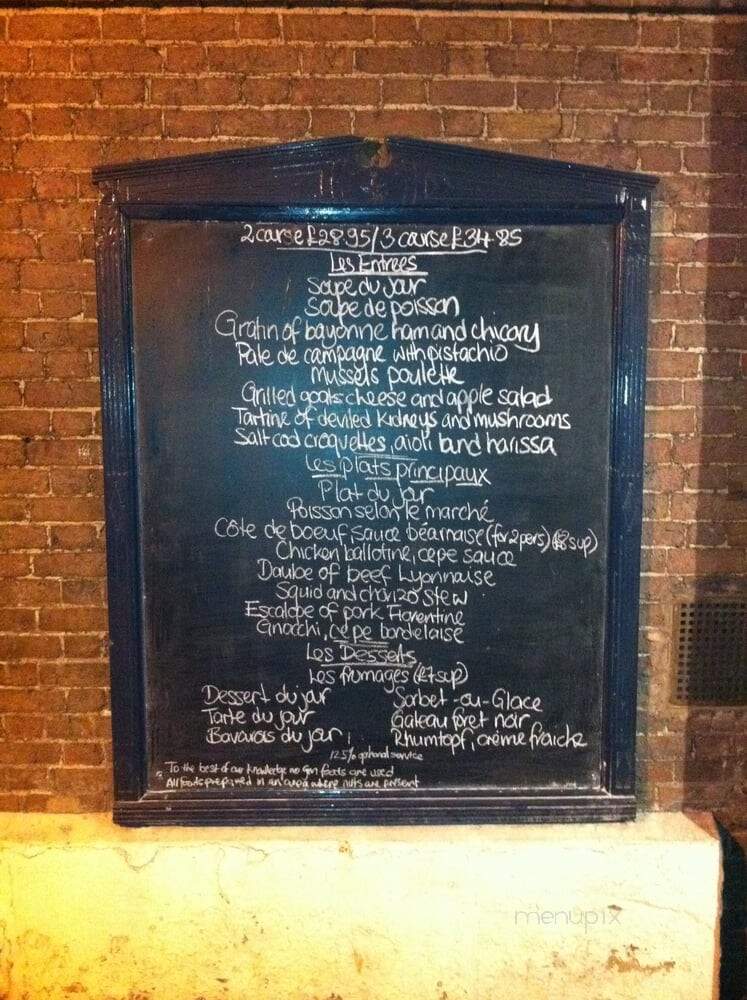 2 course £28.95/3 course £34.85
Les Entrees
Soupe du jour
Soupe de poisson
Gratin of bayonne ham and chicory
Pate de campagne with pistachio
Mussels poulette
Grilled goats cheese and apple salad
Tartine of deviled kidneys and mushrooms
Salt cod croquettes, aioli and harissa
Les plats principaux
Plat du jour
Poisson selon le marché
Côte de boeuf, sauce béarnaise (for 2 pers) (£8 sup)
Chicken ballotine, cepe sauce
Daube of beef Lyonnaise
Squid and chorizo stew
Escalope of pork Florentine
Gnocchi, cepe bordelaise
Les Desserts
Les fromages (£7 sup)
Dessert du jour Sorbet-ou-Glace
Tarte du jour Gateau foret noir
Bavarois du jour Rhumtopf, crème fraiche
12.5% optional service
To the best of our knowledge no Gm foods are used
All foods prepared in an area where nuts are present
menupix